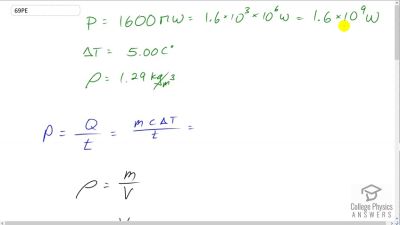 69PE
P = 1600 MW = 1.6 × 10³ × 10⁶ W = 1.6 × 10⁹ W
ΔT = 5.00 C°
ρ = 1.29 kg/m³
P = Q/t = mcΔT/t =
ρ = m/V
College Physics
ANSWERS